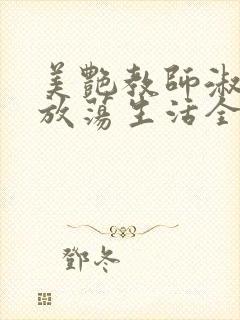 美艷教師淑
放蕩生活全
鄧冬